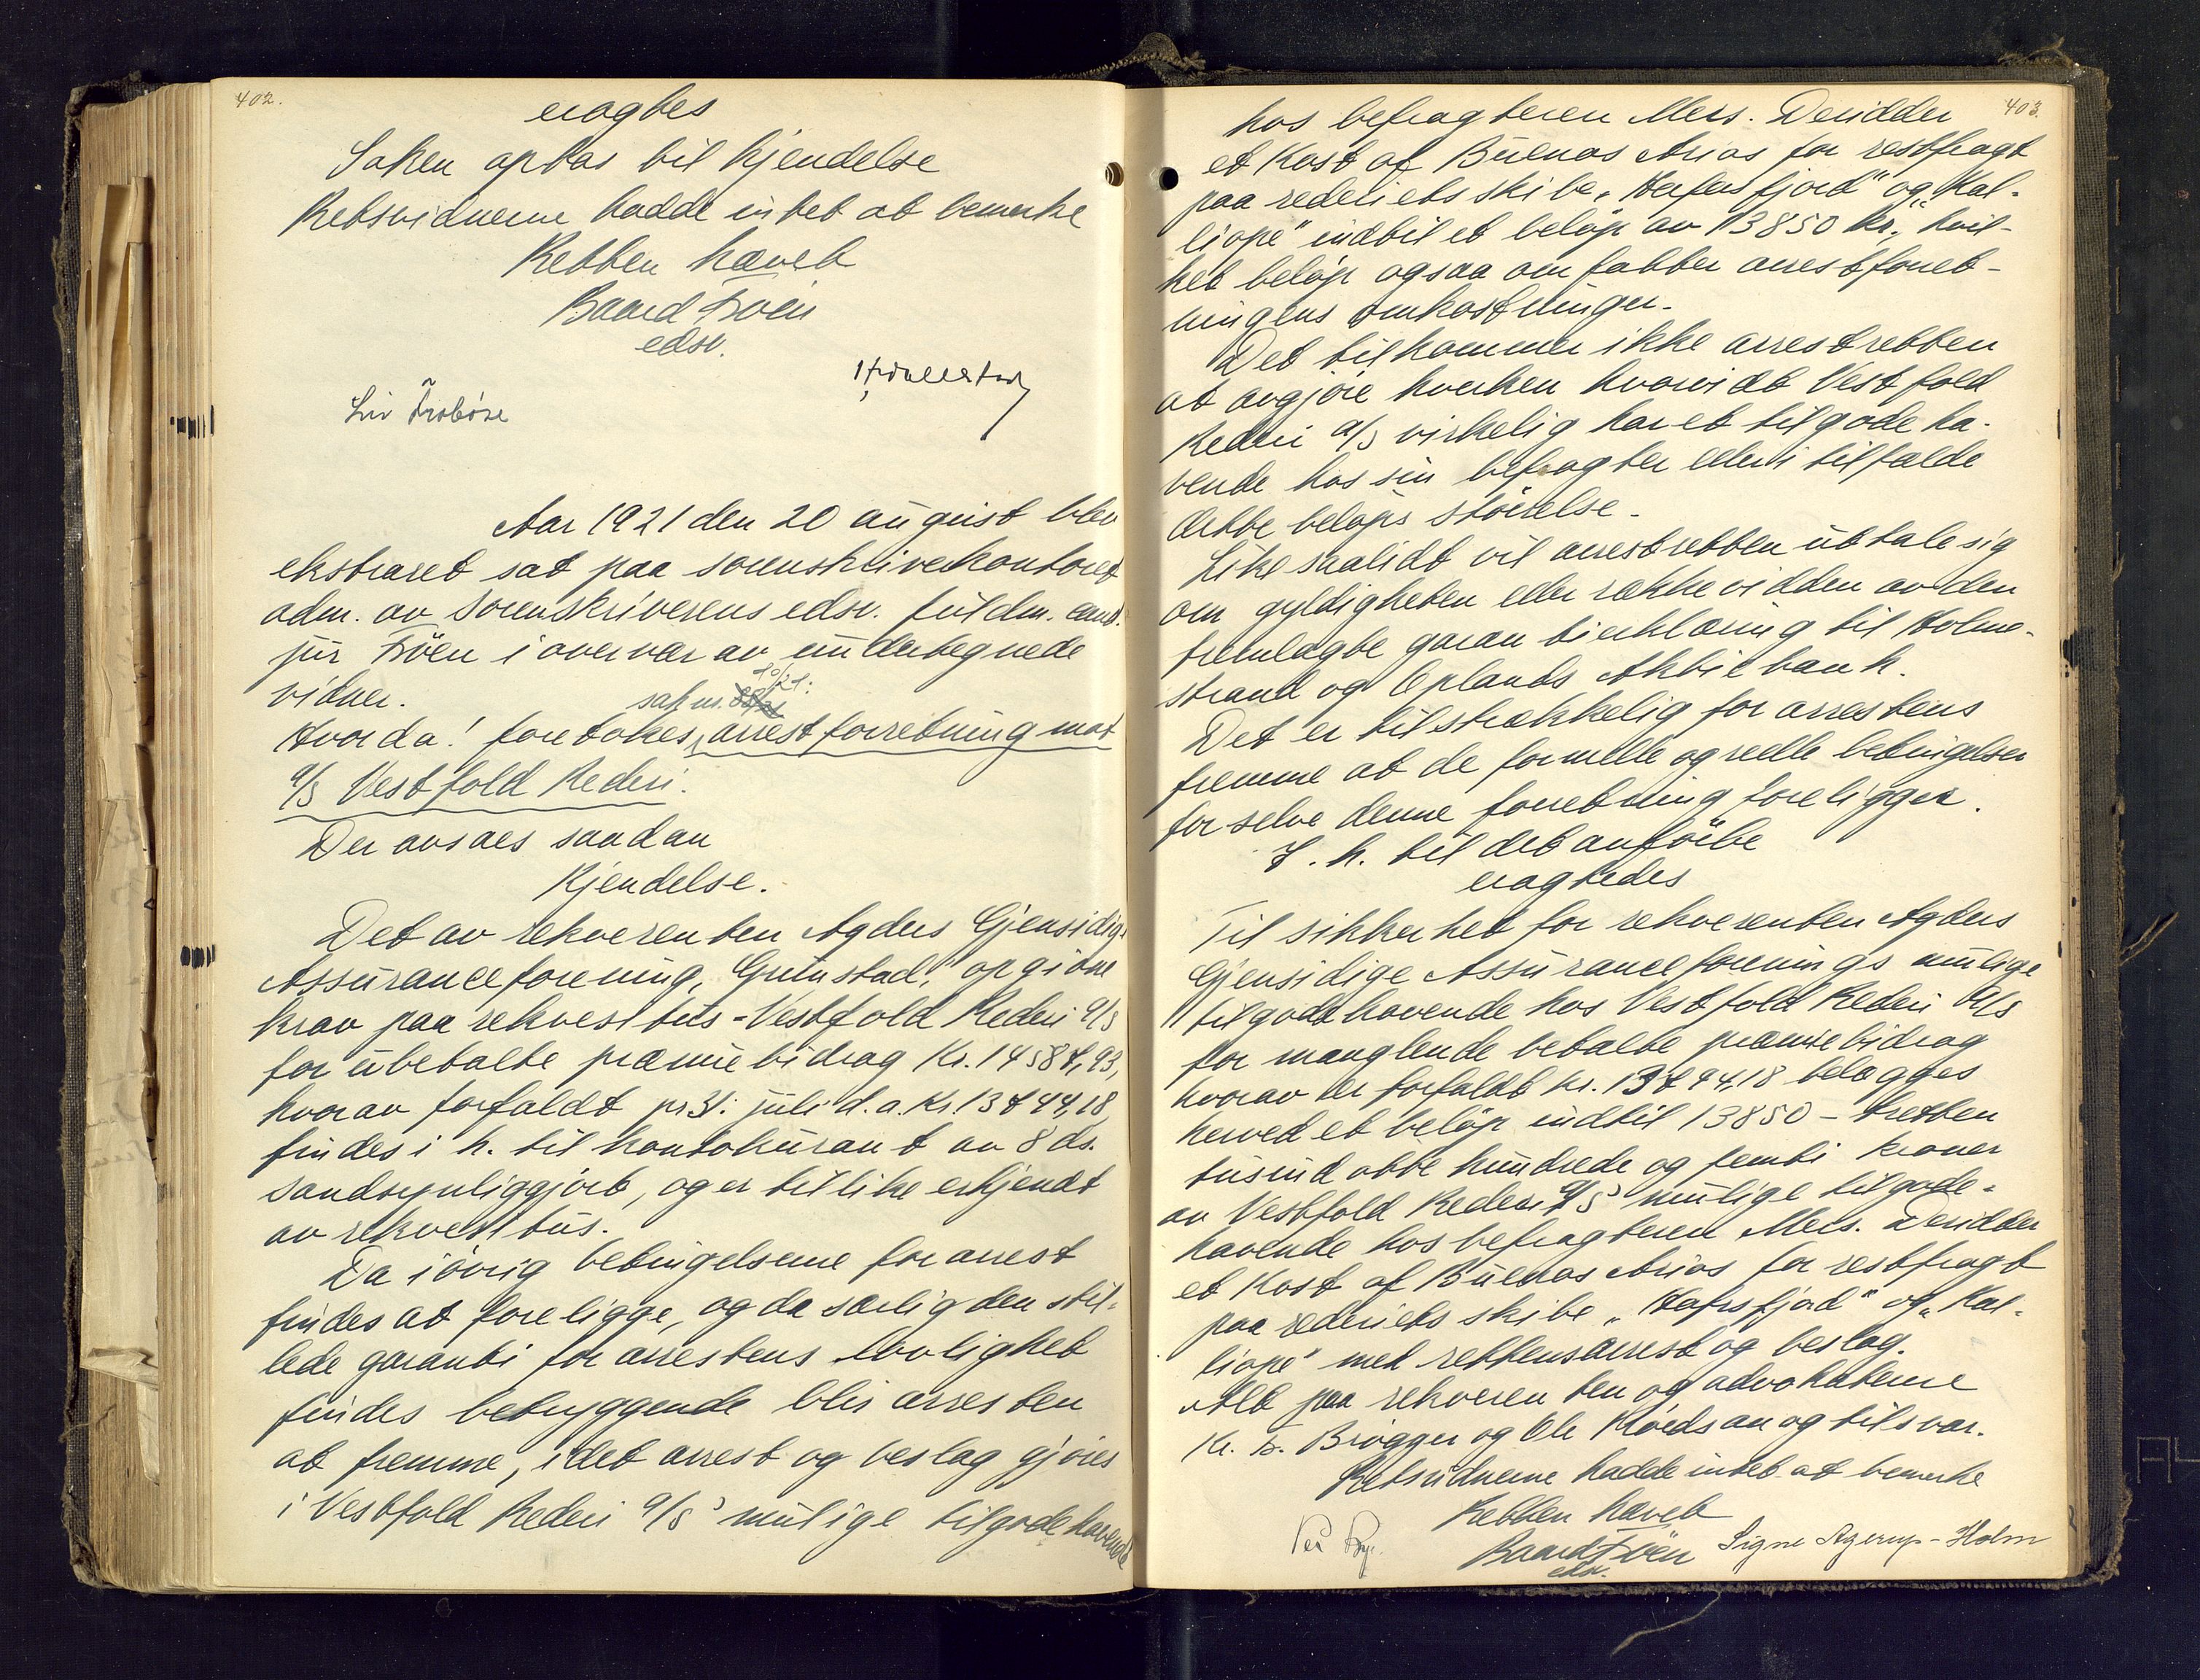 402.
eragtes
Saken optas til kjendelse
Retsvidnerne hadde intet at bemerke
Retten hævet
Baard Troen
edsv.
Liv Frobøse
Aar 1921 den 20 august blev
ekstraret sat paa sorenskriverkontoret
adm. av sorenskriverens edsv. fuldm. cand.
jur Troen i overvær av undertegnede
vidner.
sak nr. 10/21:
Hvorda! foretokes arrestforretning mot
a/s Vestfold Rederi.
Der avsaes saadan
Kjendelse.
Det av rekvirenten Agders Gjensidige
Assuranceforening, Grimstad, opgivne
krav paa rekvestus - Vestfold Rederi a/s
for ubetalte præmiebidrag Kr. 14587,93,
hvorav forfaldt pr 31. juli d.a. Kr 13744,18
findes i h. til kontokurant av 8 ds.
sandsynliggjort, og er tillike erkjendt
av rekvestus.
Da i øvrig betingelserne for arrest
findes at foreligge, og da særlig den stil-
lede garanti for arrestens lovlighet
findes betryggende blir arresten
at fremme, idet arrest og beslag gjøres
i Vestfold Rederi a/s' mulige tilgodehavende
403.
hos befragteren Mers. Deridder
et Kost of Buenos Arios for restfragt
paa rederiets skibe, "Hafrsfjord" og "Kal-
liope" indtil et beløp av 13850 kr., hvil-
ket beløp ogsaa omfatter arrestforret-
ningens omkostninger.
Det tilkommer ikke arrestretten
at avgjøre hverken hvorvidt Vestfold
Rederi a/s virkelig har et tilgodeha-
vende hos sin befragter eller i tilfælde
dette beløps størrelse.
Like saalidt vil arrestretten uttale sig
om gyldigheten eller rækkevidden av den
fremlagte garantierklæring til Holme-
strand og Oplands Aktiebank.
Det er tilstrækkelig for arrestens
fremme at de formelle og reelle betingelser
for selve denne forretning foreligger.
I. h. til det anførte
eragtedes
Til sikkerhet for rekvirenten Agders
Gjensidige Assuranceforenings mulige
tilgodehavende hos Vestfold Rederi A/s
for manglende betalte præmiebidrag
hvorav er forfaldt kr. 13794,18 belægges
herved et beløp indtil 13850 - tretten
tusind otte hundrede og femti kroner
av Vestfold Rederi A/S' mulige tilgode-
havende hos befragteren Mers. Deridder
et Kost of Buenos Arios for restfragt
paa rederiets skibe "Hafrsfjord" og "Kal-
liope" med rettens arrest og beslag.
Alt paa rekvirenten og advokaterne
Kr. Fr. Brøgger og Ole Røeds an og tilsvar.
Retsvidnerne hadde intet at bemerke
Retten hævet
Baard Troen
edsv.
Signe Agerup-Holm